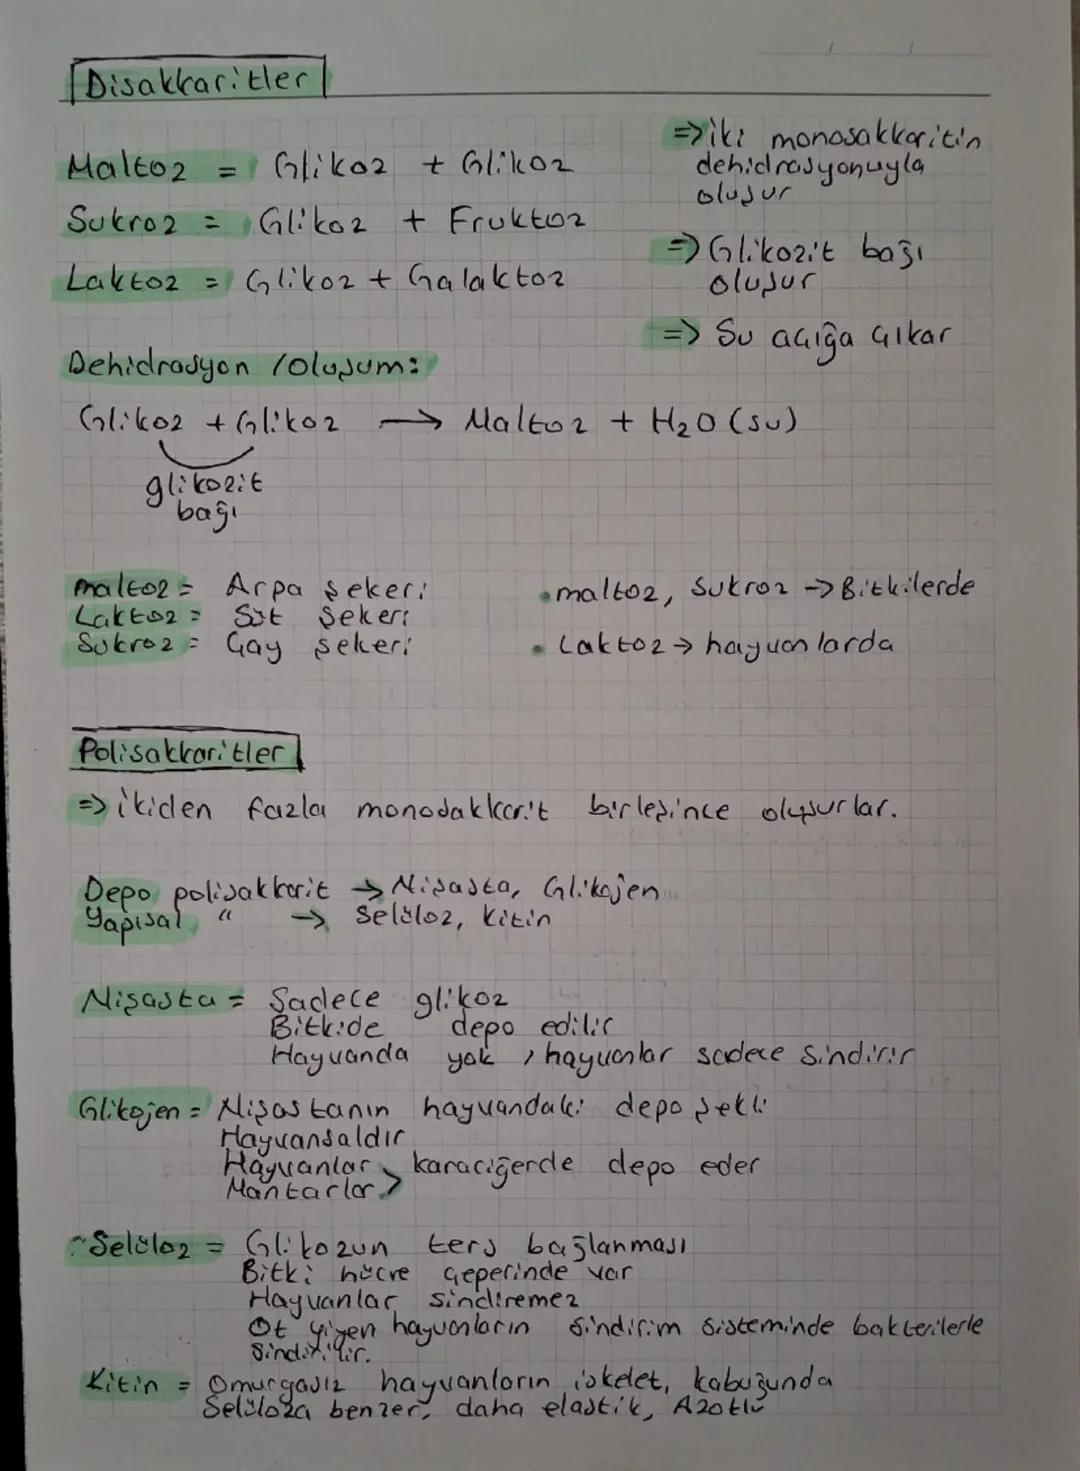 Disakkaritler
Maltoz = Glikoz + Glikoz
Sukroz = Glikoz + Fruktoz
Laktoz = Glikoz + Galaktoz
=> iki monosakkaritin
dehidrasyonuyla
oluşur
=> Glikozit bağı
oluşur
=> Su açığa çıkar
Dehidrasyon / Oluşum:
Glikoz + Glikoz → Maltoz + H₂O (su)
glikozit
bağı
maltoz = Arpa şekeri
Laktoz = Süt şekeri
Sukroz = Çay şekeri
• maltoz, Sukroz → Bitkilerde
• Laktoz → hayvanlarda
Polisakkaritler
=> ikiden fazla monosakkarit birleşince oluşurlar.
Depo polisakkarit → Nişasta, Glikojen
Yapısal " → Selüloz, Kitin
Nişasta = Sadece glikoz
Bitkide depo edilir
Hayvanda yok, hayvanlar sadece sindirir
Glikojen = Nişastanın hayvandaki depo şekli
Hayvansaldır
Hayvanlar > karaciğerde depo eder
Mantarlar
Selüloz = Glikozun ters bağlanması
Bitki hücre çeperinde var
Hayvanlar sindiremez
Ot yiyen hayvanların sindirim sisteminde bakterilerle
Sindirilir.
Kitin = Omurgasız hayvanların iskelet, kabuğunda
Selüloza benzer, daha elastik, Azotlu